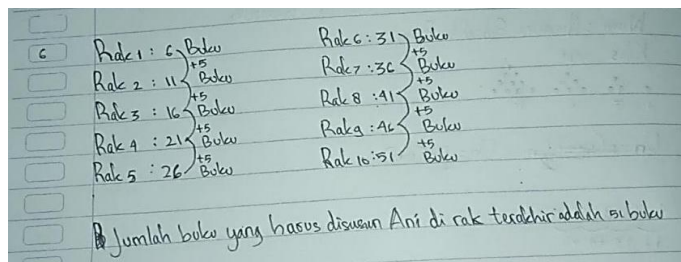 6
Rak 1 : 6 Buku
+5
Rak 2 : 11 Buku
+5
Rak 3 : 16 Buku
+5
Rak 4 : 21 Buku
+5
Rak 5 : 26 Buku
Rak 6 : 31 Buku
+5
Rak 7 : 36 Buku
+5
Rak 8 : 41 Buku
+5
Rak 9 : 46 Buku
+5
Rak 10 : 51 Buku
Jumlah buku yang harus disusun Ani di rak terakhir adalah 51 buku